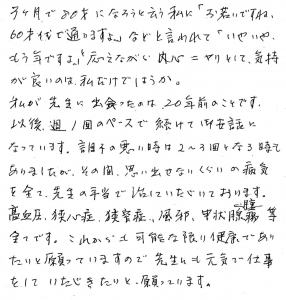 3ヶ月で80才になろうと云う私に「お若いですね、
60才代で通りますよ。」などと言われて「いやいや、
もう年ですよ。」と応えながら内心ニヤリとして、気持
が良いのは、私だけでしょうか。
私が先生に出会ったのは20年前のことです。
以後、週1回のペースで続けて御世話に
なっています。調子の悪い時は2〜3回となる時も
ありましたが、その間、思い出せないくらいの病気
を全て、先生の手当で治していただいております。
高血圧、狭心症、狭窄症、風邪、甲状腺腫 等
全てです。これからも可能な限り健康であり
たいと願っていますので先生にも元気で仕事
をしていただきたいと願っています。